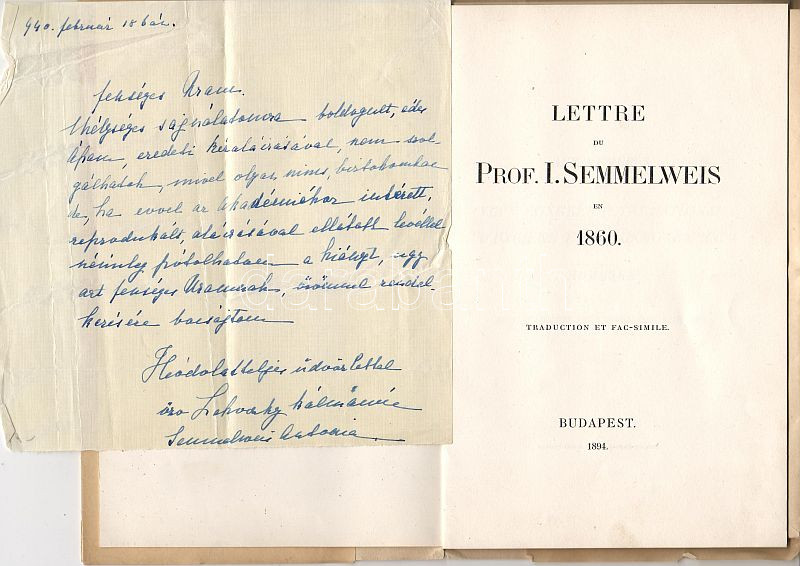 940. február 18 bán.
fenséges Uram.
Mélységes sajnálatomra boldogult, édes
Apám, eredeti kézaláírásával, nem szol-
gálhatok, mivel olyan nincs, birtokomban
de, ha evvel az Akadémiához intézett,
reprodukált, aláírásával ellátott levéllel
némileg pótolhatom a hiányt, úgy
azt fenséges Uramnak, örömmel rendel-
kezésére bocsájtom
Hódolatteljes üdvözlettel
özv Lehoczky Kálmánné
Semmelweis Antonia
LETTRE
DU
PROF. I. SEMMELWEIS
EN
1860.
TRADUCTION ET FAC-SIMILE.
BUDAPEST.
1894.